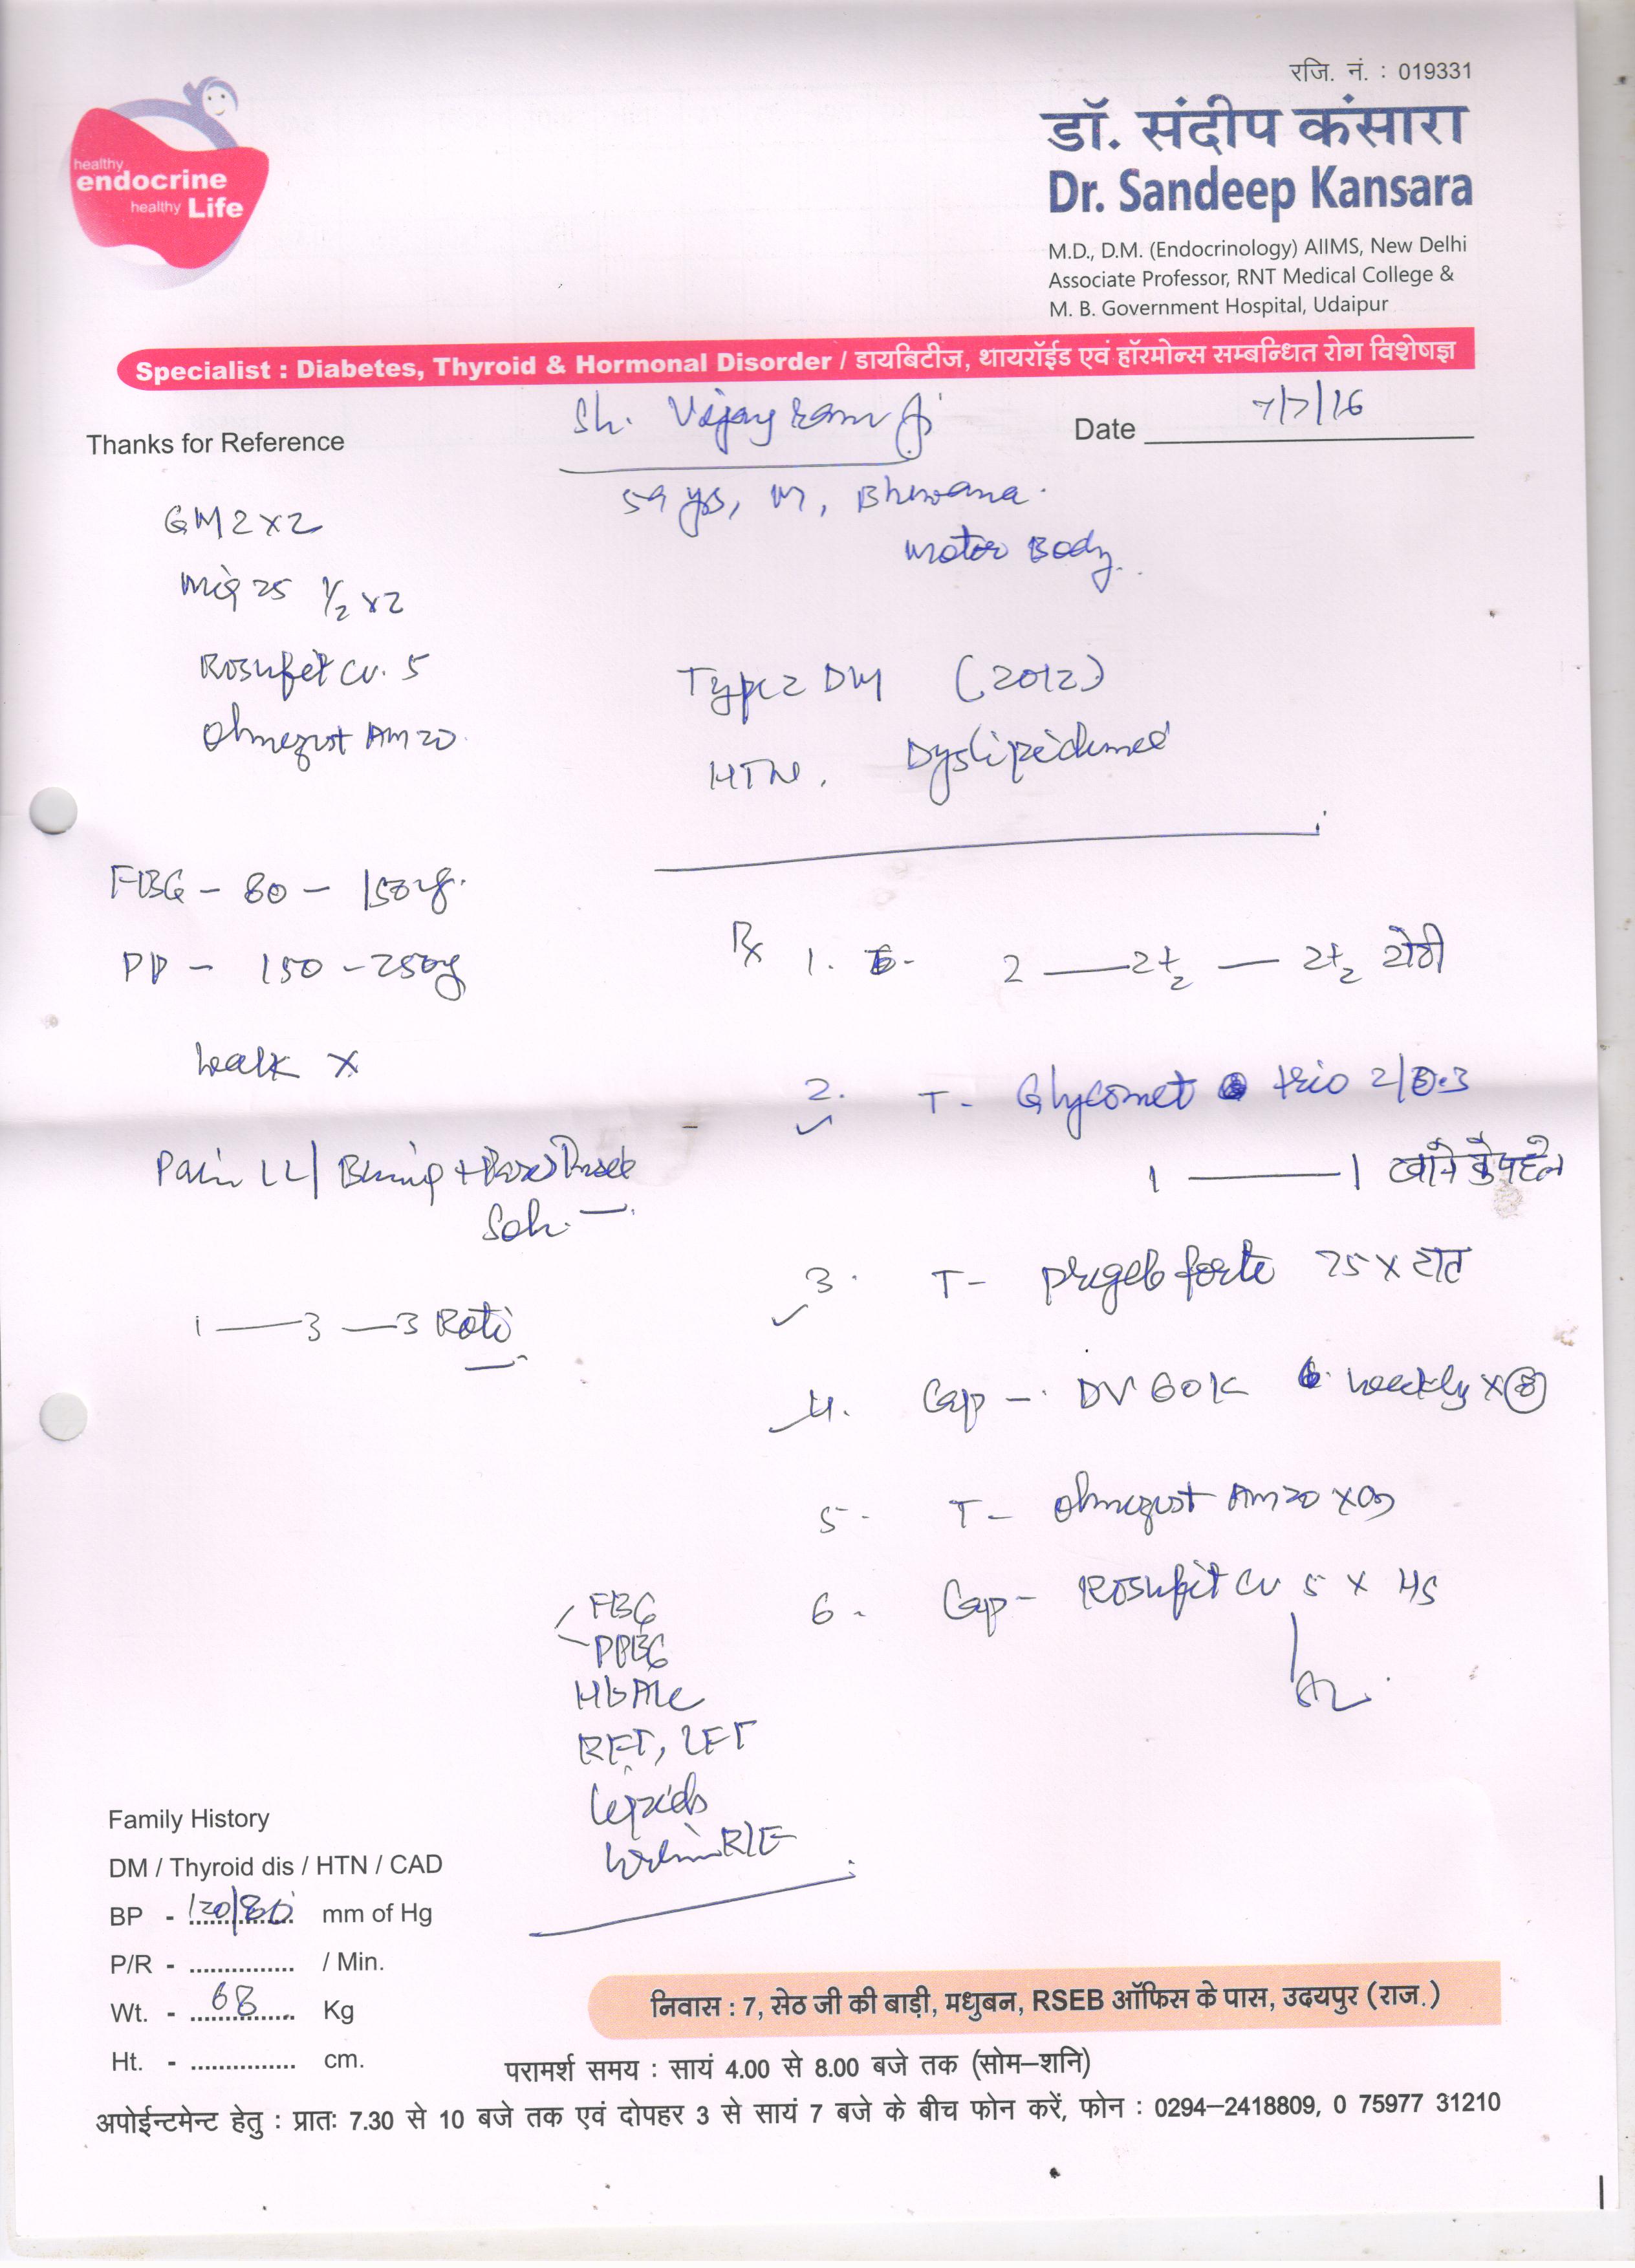 रजि. नं. : 019331
healthy
endocrine
healthy Life
डॉ. संदीप कंसारा
Dr. Sandeep Kansara
M.D., D.M. (Endocrinology) AIIMS, New Delhi
Associate Professor, RNT Medical College &
M. B. Government Hospital, Udaipur
Specialist : Diabetes, Thyroid & Hormonal Disorder / डायबिटीज, थायरॉईड एवं हॉरमोन्स सम्बन्धित रोग विशेषज्ञ
Thanks for Reference
Sh. Vijay Ram Ji
Date 7/7/16
59 yrs, M, Bhuwana.
Motor Body.
GM2 x 2
Mig 25 1/2 x 2
Rosufit CV. 5
Olmezest AM 20.
Type 2 DM (2012)
HTN. Dyslipidemia
FBG - 80 - 150
PP - 150 - 250
Walk x
Pain LL/
1 — 3 — 3 Roti
Rx 1. 2 — 2 1/2 — 2 1/2 रोटी
2. T - Glycomet trio 2/0.3
1 — 1 खाने के पहले
3. T - Pregeb forte 75 x रात
4. Cap - DV 60K weekly x 8
5 - T - Olmezest AM 20 x OD
6 - Cap - Rosufit CV 5 x HS
FBG
PPBG
HbA1c
RFT, LFT
Lipids
Urine R/E
Family History
DM / Thyroid dis / HTN / CAD
BP - 120/80 mm of Hg
P/R - ............... / Min.
Wt. - 68 Kg
Ht. - ............... cm.
निवास : 7, सेठ जी की बाड़ी, मधुबन, RSEB ऑफिस के पास, उदयपुर (राज.)
परामर्श समय : सायं 4.00 से 8.00 बजे तक (सोम–शनि)
अपोईन्टमेन्ट हेतु : प्रातः 7.30 से 10 बजे तक एवं दोपहर 3 से सायं 7 बजे के बीच फोन करें, फोन : 0294–2418809, 0 75977 31210